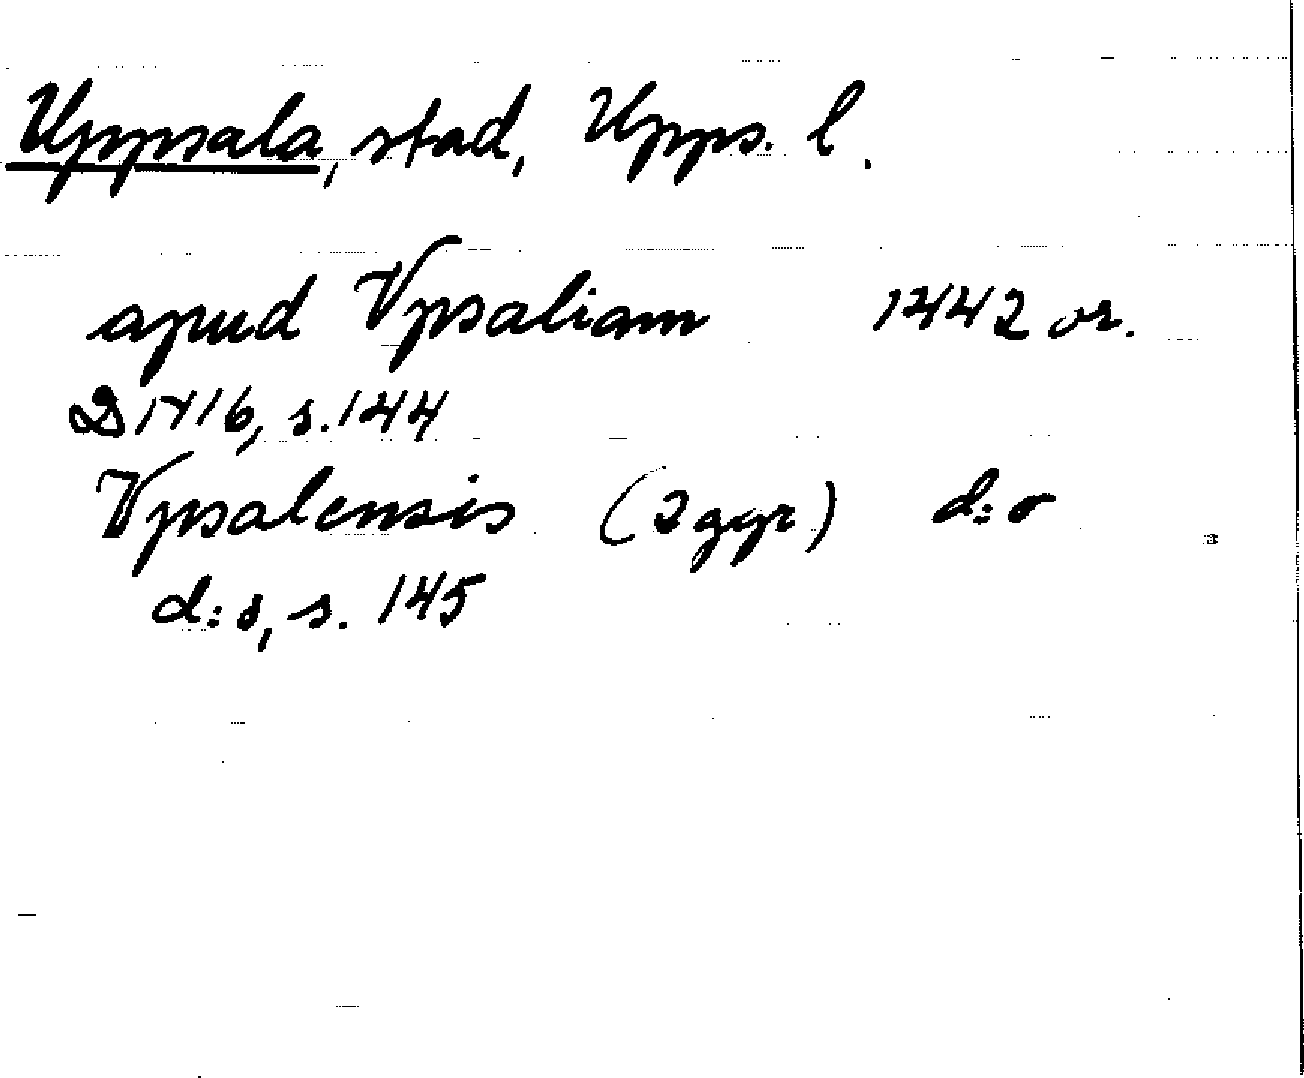 Uppsala, stad, Upps. l.
apud Vpsaliam 1442 or.
D IV 16, s. 144
Vpsalensis (2 ggr) d:o
d:s, s. 145